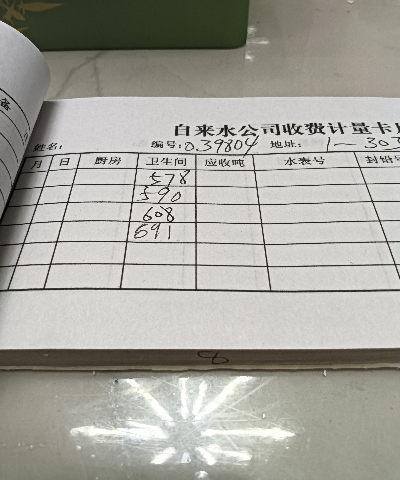 自来水公司收费计量卡
姓名: 编号: 0.39804 地址: 1-303
月 日 厨房 卫生间 应收吨 水表号 封铅号
578
590
608
691
8